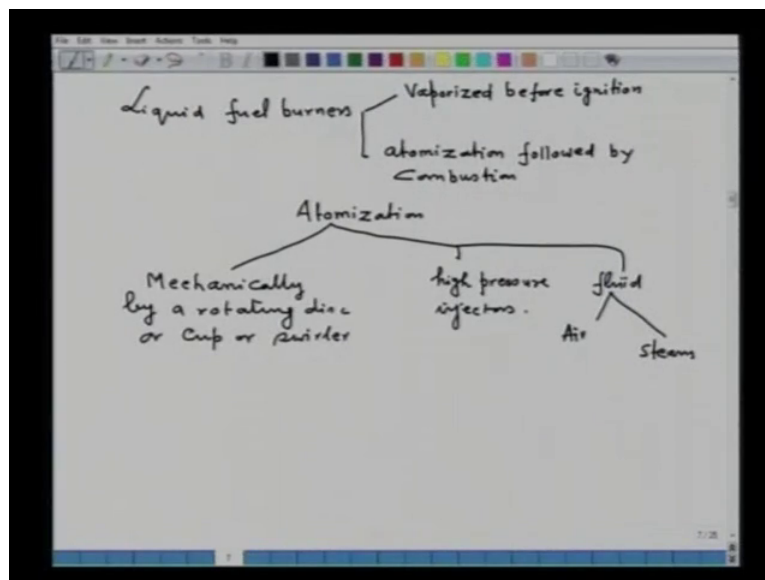 File Edit View Insert Actions Tools Help
Liquid fuel burners
Vaporized before ignition
atomization followed by
Combustion
Atomization
Mechanically
by a rotating disc
or Cup or swirler
high pressure
injectors.
fluid
Air
Steam
7/25
7